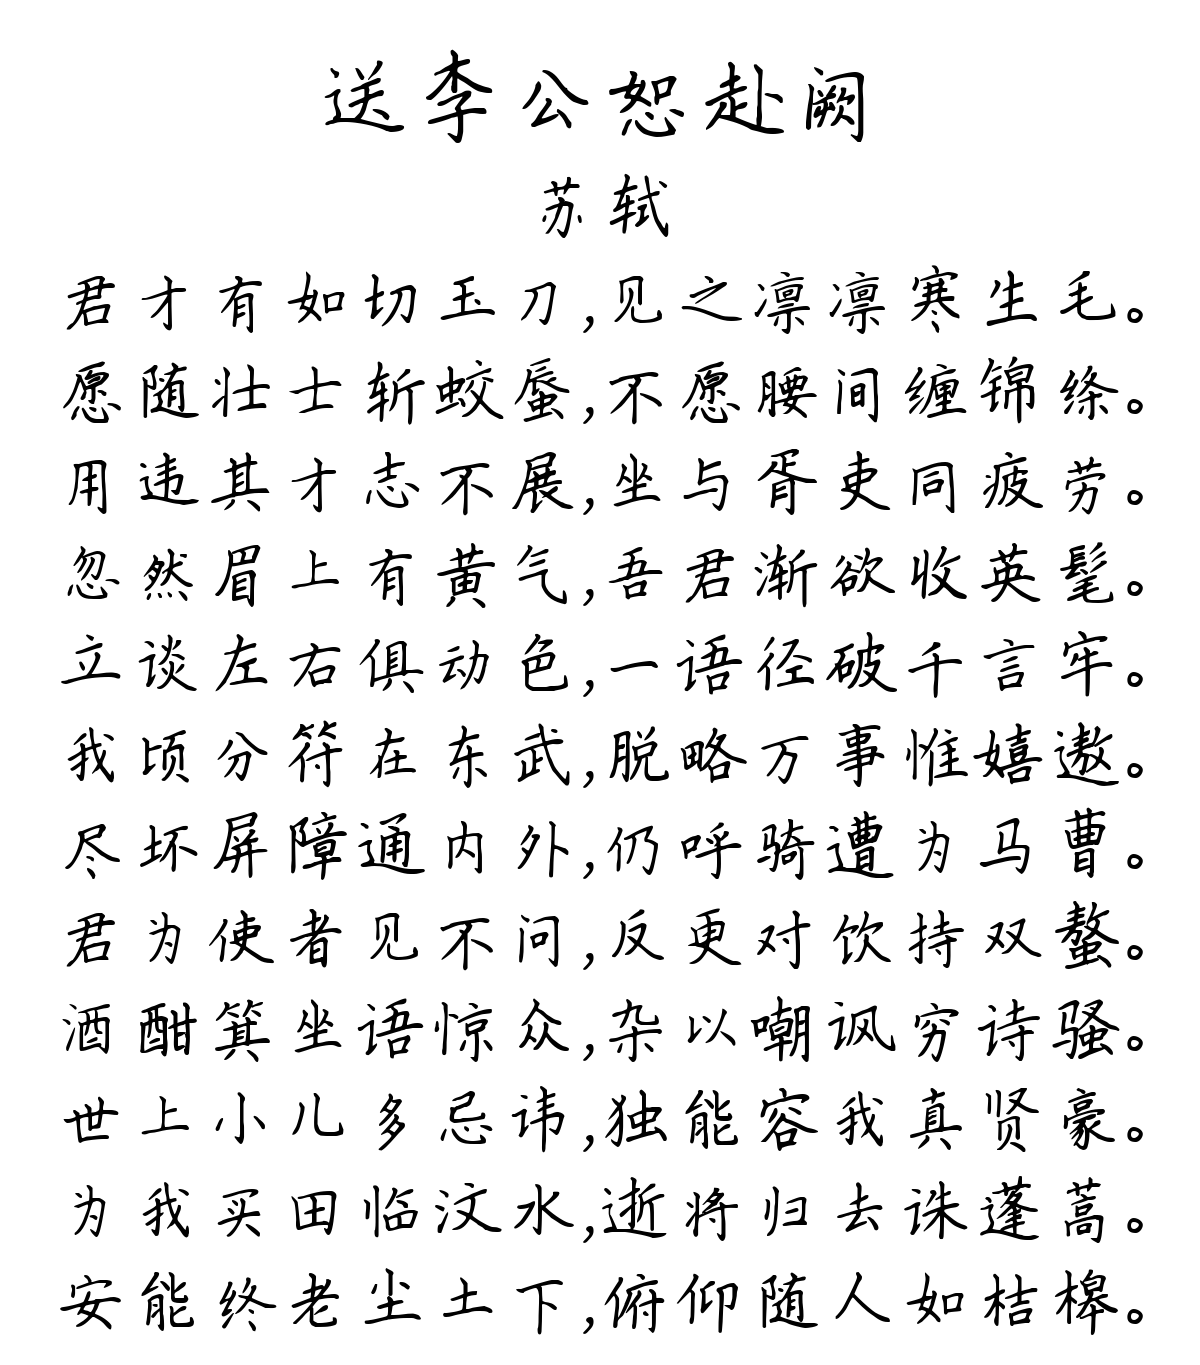 送李公恕赴阙
苏轼
君才有如切玉刀,见之凛凛寒生毛。
愿随壮士斩蛟蜃,不愿腰间缠锦绦。
用违其才志不展,坐与胥吏同疲劳。
忽然眉上有黄气,吾君渐欲收英髦。
立谈左右俱动色,一语径破千言牢。
我顷分符在东武,脱略万事惟嬉遨。
尽坏屏障通内外,仍呼骑遭为马曹。
君为使者见不问,反更对饮持双螯。
酒酣箕坐语惊众,杂以嘲讽穷诗骚。
世上小儿多忌讳,独能容我真贤豪。
为我买田临汶水,逝将归去诛蓬蒿。
安能终老尘土下,俯仰随人如桔槔。